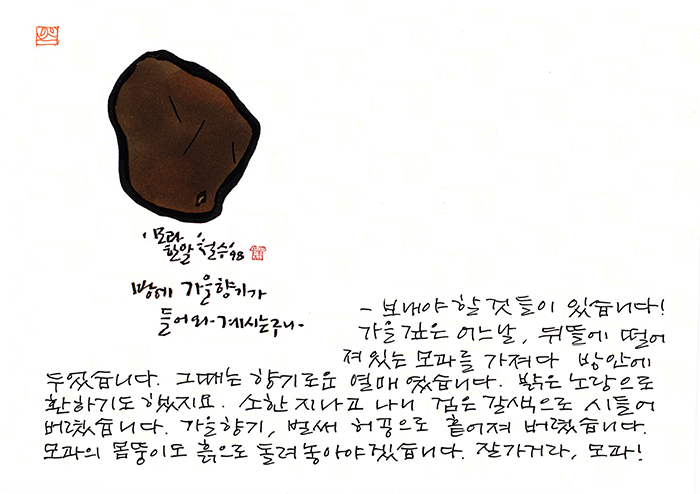 '모과
한알' 철수 '98
방에 가을향기가
들어와-계시는구나-
- 보내야 할 것들이 있습니다!
가을 깊은 어느날, 뒤뜰에 떨어
져 있는 모과를 가져다 방안에
두었습니다. 그때는 향기로운 열매였습니다. 밝은 노랑으로
환하기도 했지요. 소한 지나고 나니 검은 갈색으로 시들어
버렸습니다. 가을향기, 벌써 허공으로 흩어져 버렸습니다.
모과의 몸뚱이도 흙으로 돌려 놓아야겠습니다. 잘가거라, 모과!